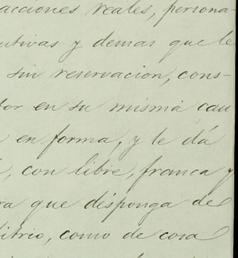 acciones reales, persona-
utivas y demas que le
sin reservacion, cons-
tor en su misma cau
en forma, y le dá
con libre, franca y
ra que disponga de
bitrio, como de cosa